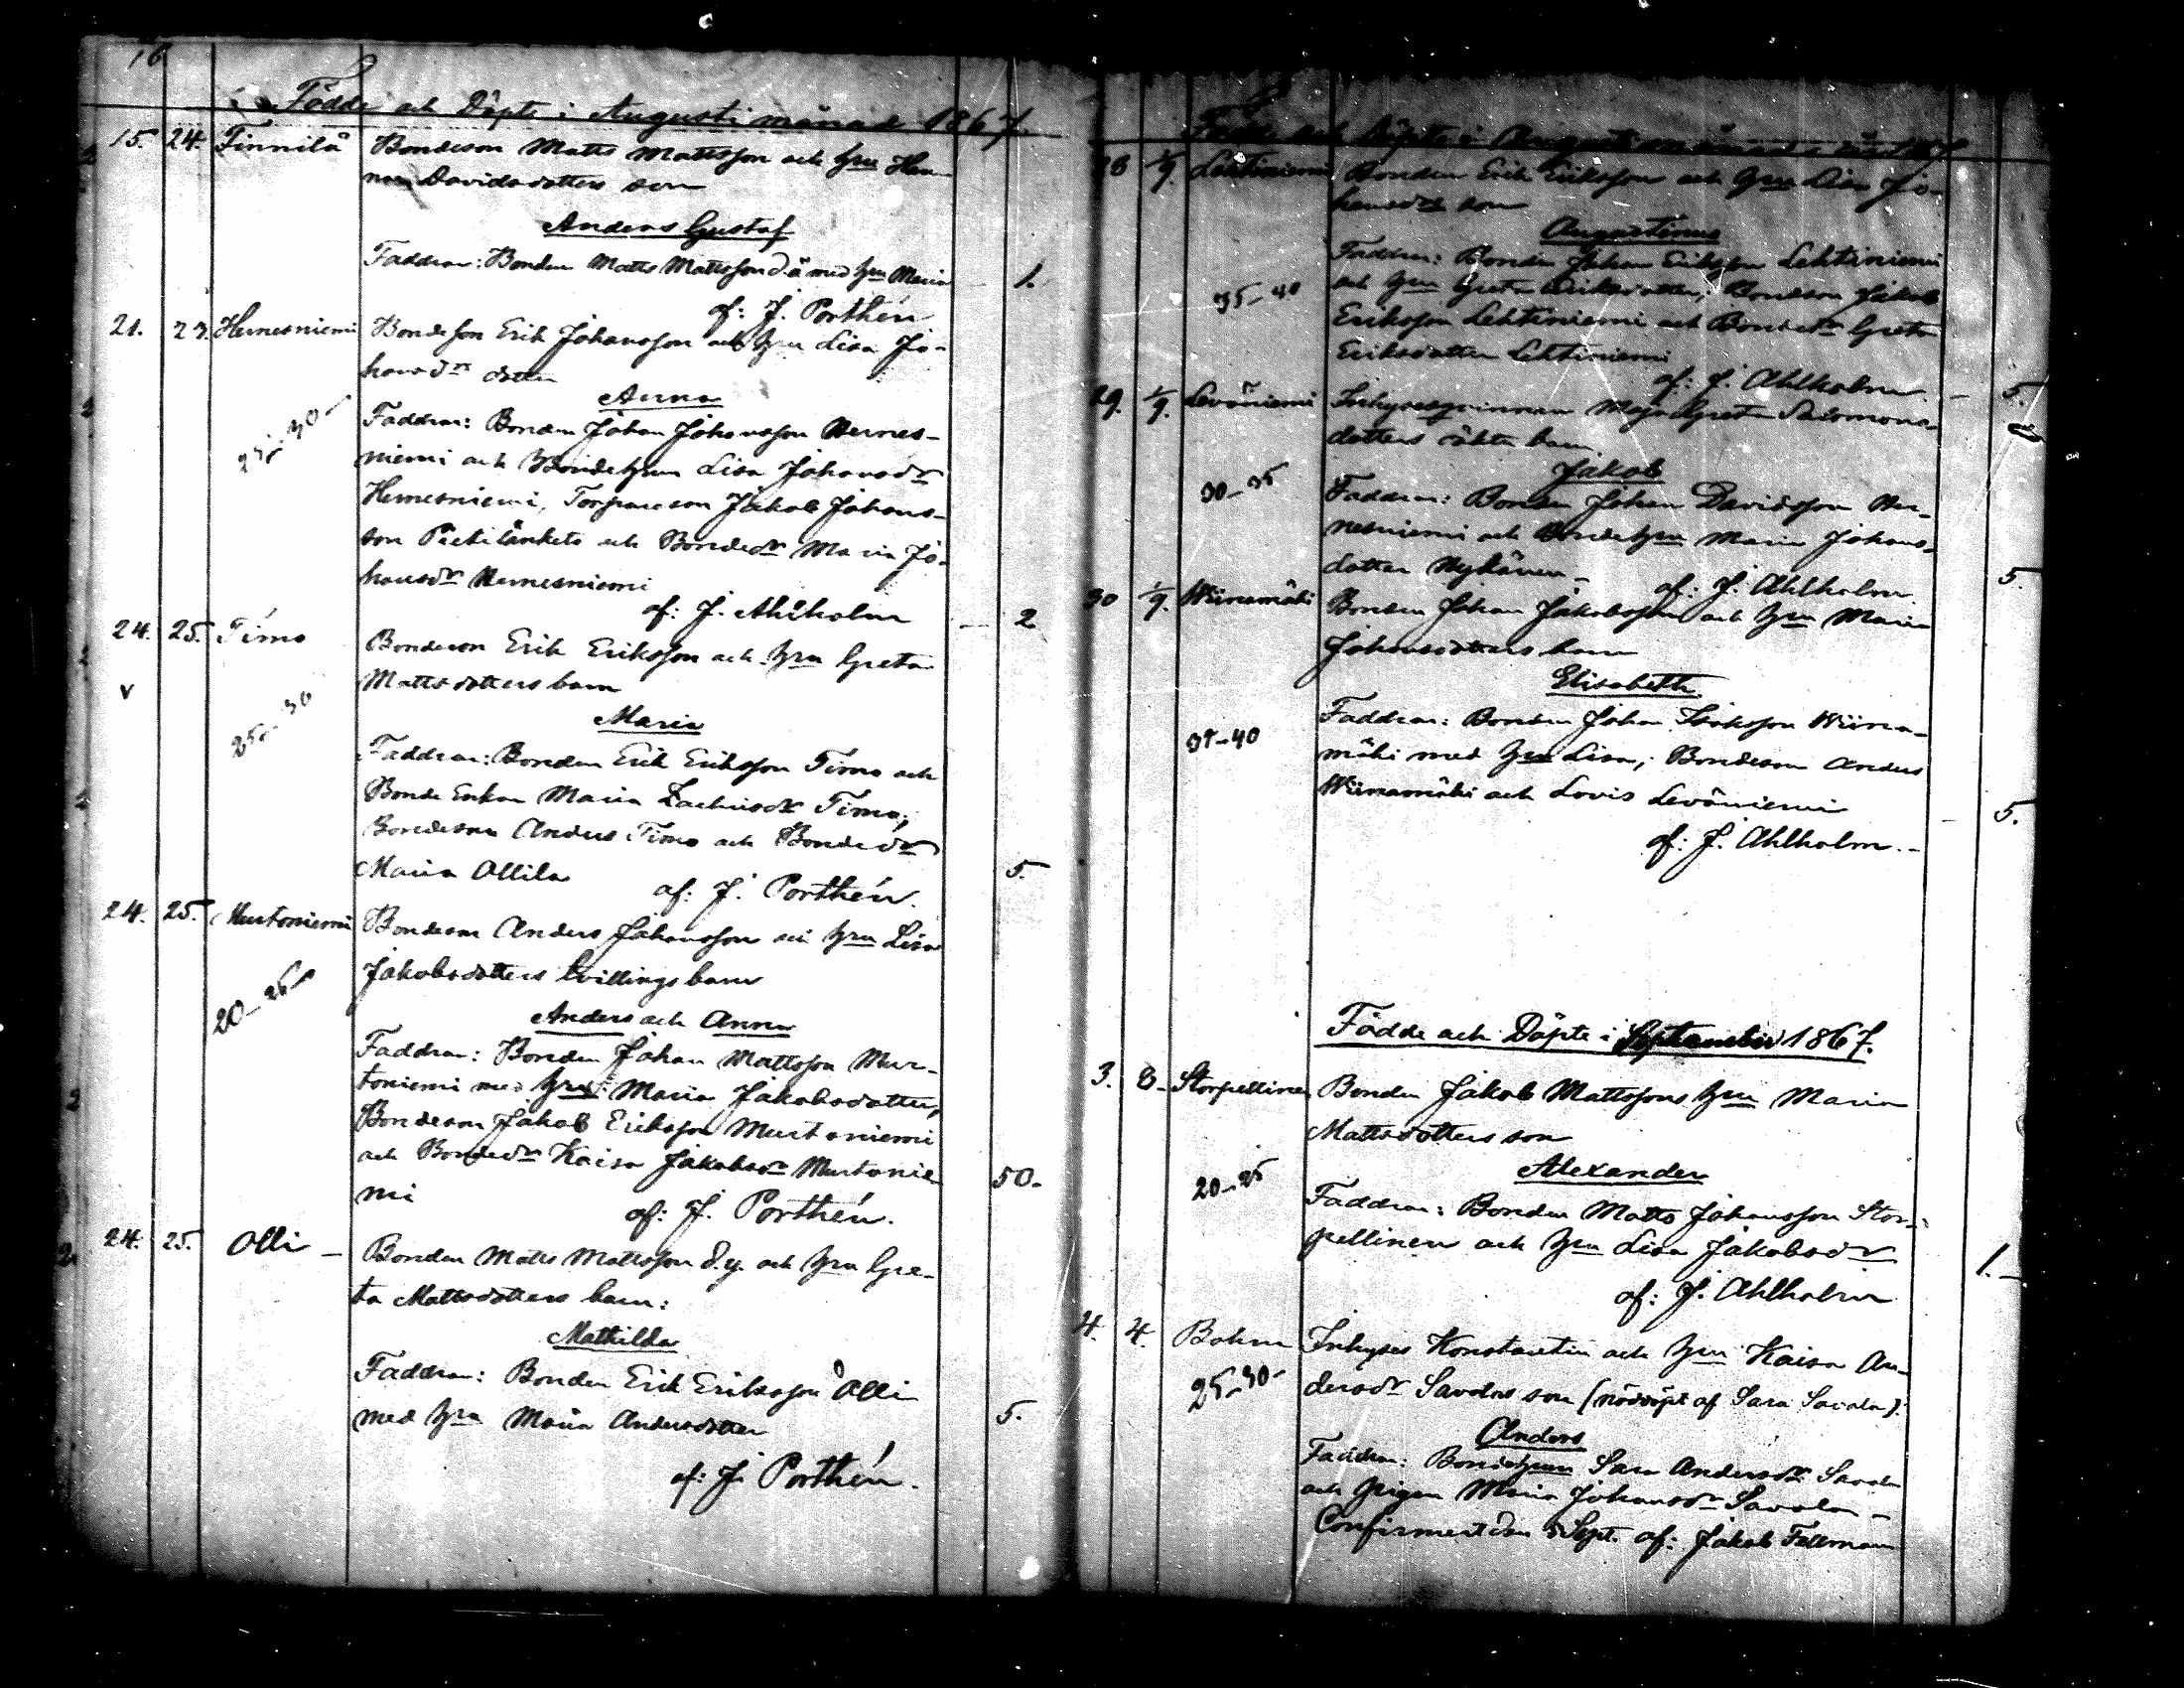 16
Födde och Döpte i Augusti månad 1867.
15. 24. Finnilä Bondeson Matts Mattsson och hu Han-
na Davidsdotters son
Anders Gustaf
Faddrar: Bonden Matts Mattsson d.ä med hu Maria
1.
af: J. Porthén
21. 27. Hernesniemi Bondeson Erik Johansson och hu Lisa Jo-
hansdr dotter
Anna
25-30
Faddrar: Bonden Johan Johansson Hernes-
niemi och Bondehun Lisa Johansdr
Hernesniemi, Torpareson Jakob Johans-
son och Bondedr Maria Jo-
hansdr Hernesniemi
af: J. Ahlholm
2
24. 25. Timo Bondeson Erik Eriksson och hu Greta
v
Mattsdotters barn
25-30
Maria
Faddrar: Bonden Erik Eriksson Timo och
Bonde Enkan Maria Zachrisdr Timo;
Bondeson Anders Timo och Bondedr
Maria Ollila
5.
af: J. Porthén.
24. 25. Murtoniemi Bondeson Anders Johansson och hu Lisa
Jakobsdotters tvillingsbarn
20-25
Anders och Anna
Faddrar: Bonden Johan Mattsson Mur-
toniemi med hu: Maria Jakobsdotter,
Bondeson Jakob Eriksson Murtoniemi
och Bondedr Kaisa Jakobsdr Murtonie
mi
50.
af: J. Porthén.
24. 25. Olli - Bonden Matts Mattsson d.y. och hu Gre-
ta Mattsdotters barn:
Mathilda
Faddrar: Bonden Erik Eriksson Olli
med hu Maria Andersdotter
5.
af: J. Porthén.
Födde och Döpte i Augusti månad 1867
28 1/9. Lehtiniemi Bonden Erik Eriksson och hu Lisa Jo-
hansdrs son
Augustinus
Faddrar: Bonden Johan Eriksson Lehtiniemi
35-40
och hu Greta Eriksdotter; Bondeson Jakob
Eriksson Lehtiniemi och Bondedr Greta
Eriksdotter Lehtiniemi
af: J. Ahlholm.
5.
29. 1/9. Leväniemi Inhysesqvinnan Maja Greta Salomons-
dotters oäkta barn
30-35
Jakob
Faddrar: Bonden Johan Davidsson Her-
nesniemi och Bondehun Maria Johans-
dotter Nykänen -
af: J. Ahlholm.
5.
30 1/9. Wiinamäki Bonden Johan Jakobsson och hu Maria
Johansdotters barn
Elisabeth.
35-40
Faddrar: Bonden Johan Isaksson Wiina-
mäki med hu Lisa; Bondeson Anders
Wiinamäki och Lovis Leväniemi
5.
af: J. Ahlholm.-
Födde och Döpte i September 1867.
3. 8- Storpellinen Bonden Jakob Mattssons hu Maria
Mattsdotters son
20-25
Alexander
Faddrar: Bonden Matts Johansson Stor-
pellinen och hu Lisa Jakobsdr
1.-
af: J. Ahlholm
4. 4. Bohm Inhyses Konstantin och hu Kaisa An-
25-30-
dersdr Savolas son (nöddöpt af Sara Savola).
Anders
Faddrar: Bondehun Sara Andersdr Savola
och pigan Maria Johansdr Savola -
Confirmert den 8 Sept. af: Jakob Fellman